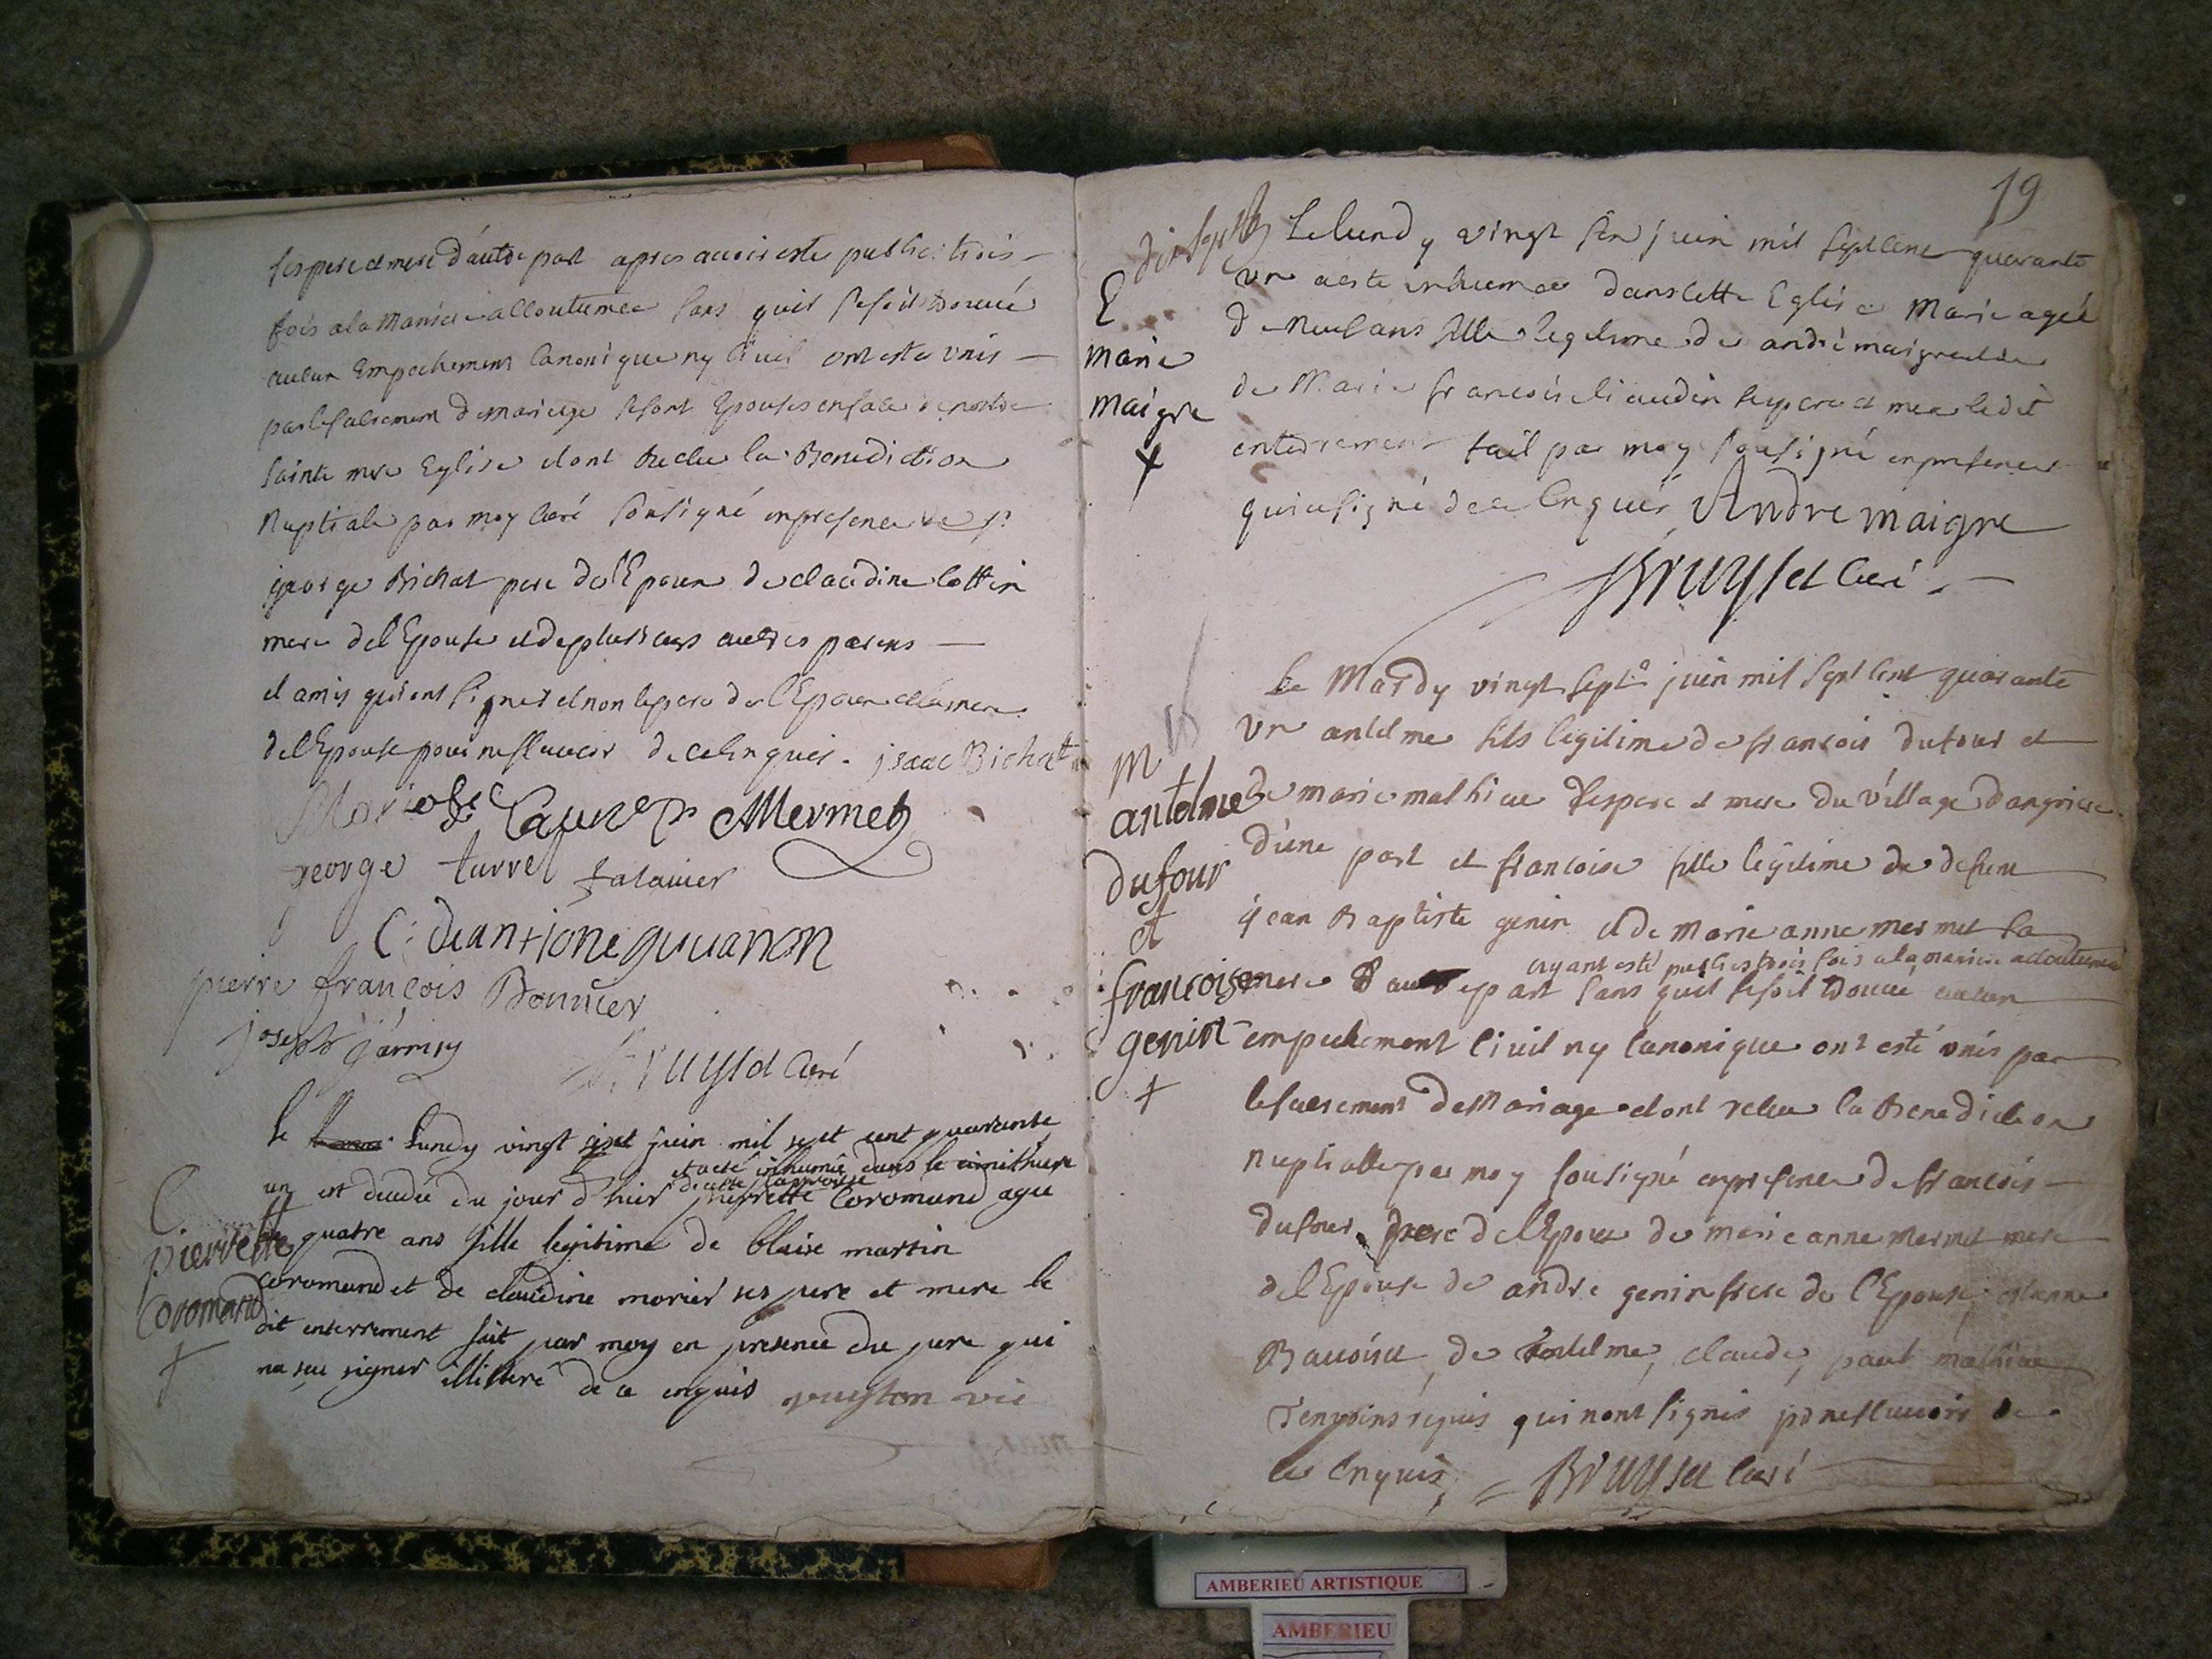 ses pere et mere d'autre part apres avoir este publié trois
fois a la maniere accoutumee sans quil se soit trouué
aucun Empechement Canonique ny Ciuil ont este vnis
par le sacrement de mariage se sont Epousés en face de nostre
sainte mere Eglise et ont Receu la Benediction
Nuptiale par moy Curé sousigné en presence de sr
george Bichat pere de l'Epoux de claudine Cottin
mere de l'Epouse et de plusieurs autres parens
et amis qui ont signes et non le pere de l'Epoux et la mere
de l'Epouse pour ne scauoir de ce Enquis. jsaac Bichat
Mermet
george turrel
C: de antione guuanon
pierre françois Bonnier
joseph
Bruyset Curé
le lundy vingt sixet juin mil sept cent quarante
et a eté inhumé dans le cimithiere
de cette parroisse
un est decedée du jour d'hier pierrette Coromand agee
de quatre ans fille legitime de blaise martin
coromand et de claudine morier ses pere et mere le
dit enterrement fait par moy en presence du pere qui
na sçu signer illiteré de ce enquis vic
pierrette
Coromand
19
Le lundy vingt six juin mil sept cent quarante
vn a este inhumee dans cette Eglise Marie ageé
de Neuf ans fille legitime de andré maigre et de
de Marie francoise liaudin ses pere et mere ledit
enterrement fait par moy sousigné en presence
qui a signé de ce Enquis Andre maigre
Bruyset Curé
E
marie
maigre
Le Mardy vingt septe juin mil sept cent quarante
vn antelme fils legitime de francois dufour et
de marie mathieu ses pere et mere du village dangriere
d'une part et francoise fille legitime de defunt
jean Baptiste genin et de marie anne mermet sa
ayant esté publies trois fois a la maniere accoutumee
mere d'autre part sans quil se soit trouué aucun
empechement Ciuil ny Canonique ont esté vnis par
le sacrement de Mariage et ont receu la Benediction
nuptialle par moy sousigné en presence de francois
dufour pere de l'Epoux de marie anne mermet mere
de l'Epouse de andre genin frere de l'Epouse,
de antelme, claude, paul mathieu
temoins requis qui n'ont signés pr ne scauoir de
ce Enquis, Bruyset Curé
M
antelme
dufour
et
francoise
genin
AMBERIEU ARTISTIQUE
AMBERIEU